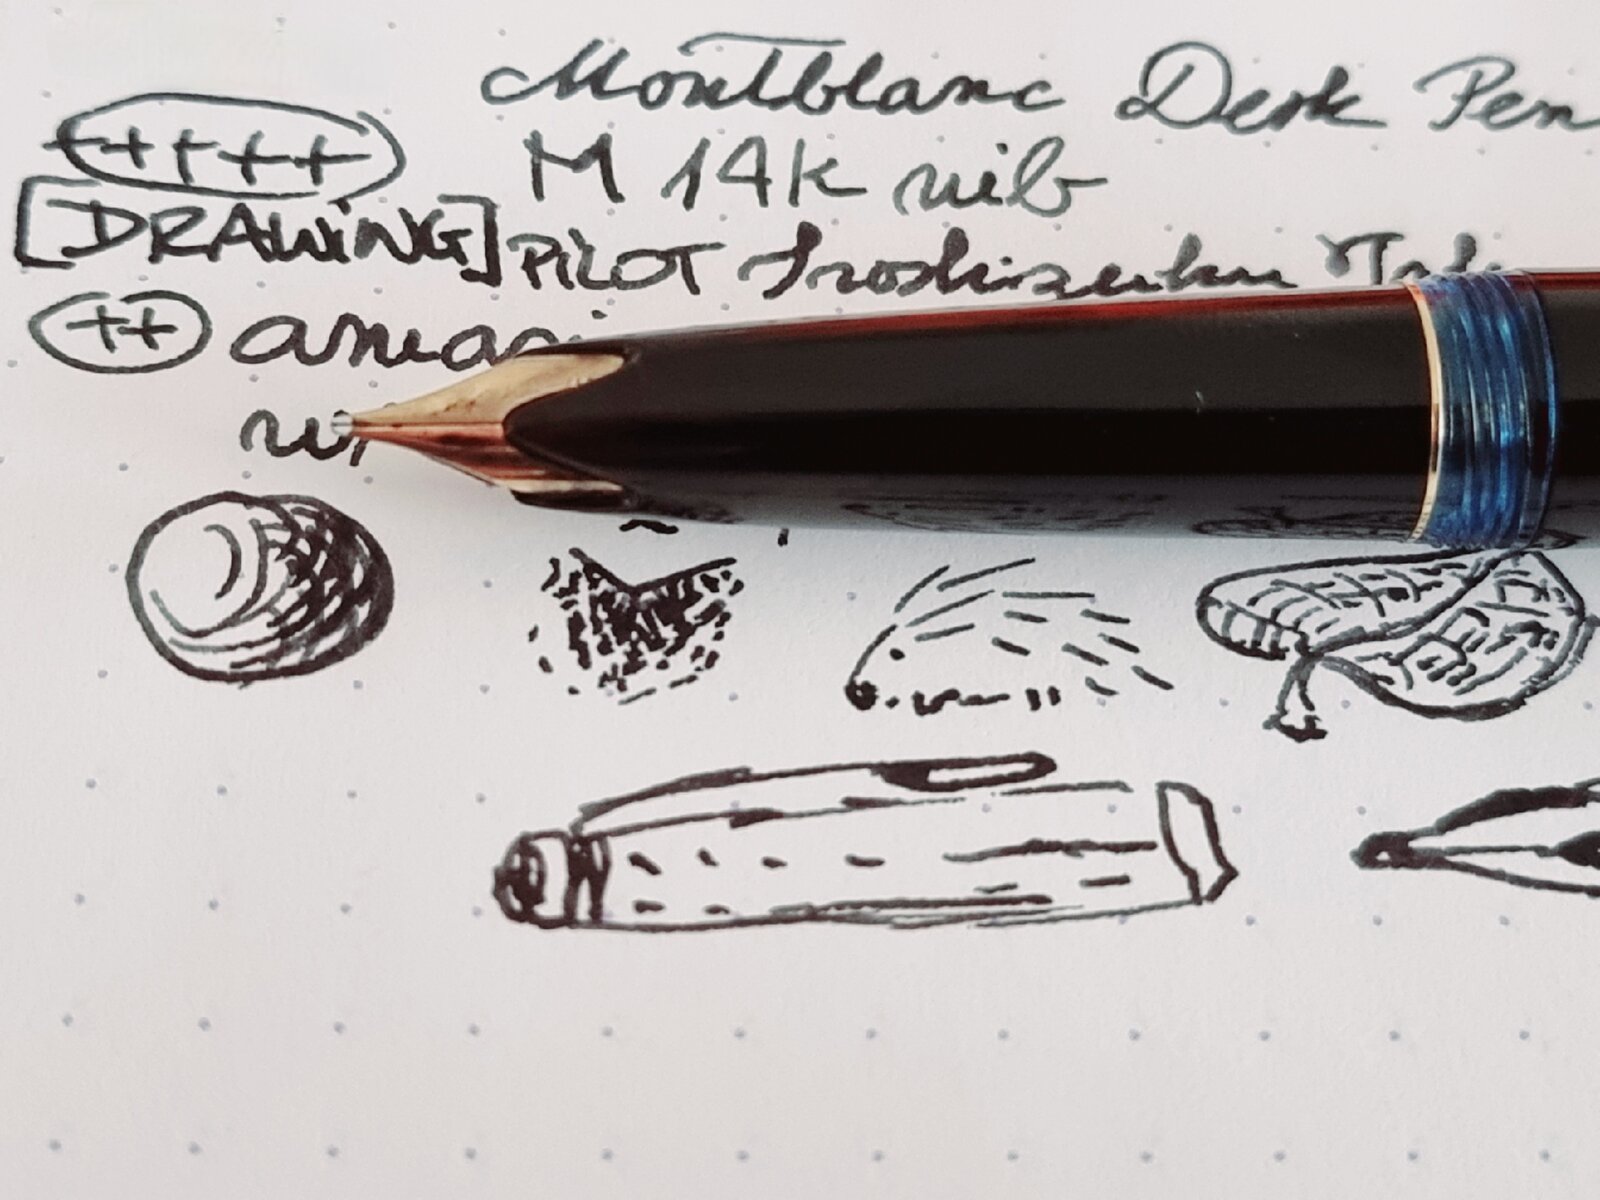 Montblanc Desk Pen
++++ M 14k nib
[DRAWiNG] PiLOT Iroshizuku
++